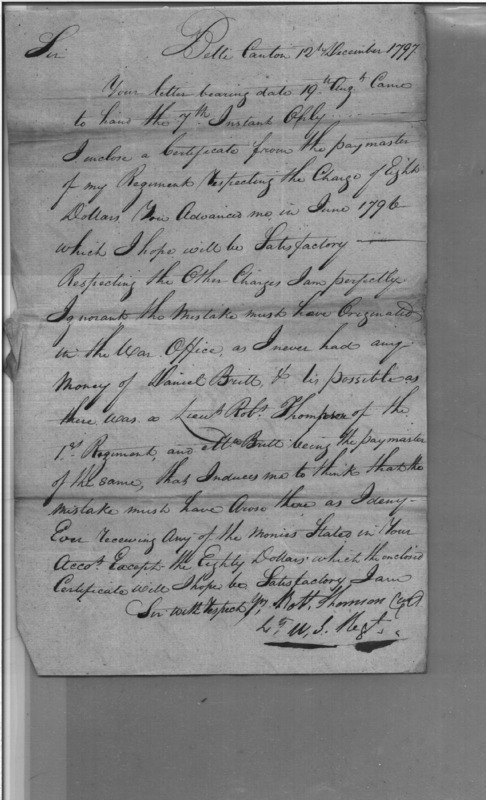 Sir Belle Canton 12th December 1797
Your letter bearing date 19th Augt Came
to hand the 7th Instant Only
I inclose a Certificate from the paymaster
of my Regiment respecting the Charge of Eight
Dollars You Advanced me in June 1796
which I hope will be Satisfactory
Respecting the Other Charges I am perfectly
Ignorant the mistake must have Originated
in the War Office, as I never had any
Money of Daniel Britt, & tis possible as
there was a Lieut Robt Thompson of the
1st Regiment, and Mr Britt being the paymaster
of the same, that Induces me to think that the
mistake must have Arose there as I deny
Ever receiving Any of the Monies Stated in Your
Accot Except the Eighty Dollars which the enclosed
Certificate Will I hope be Satisfactory I am
Sir with respect Yr Robt. Thomson
4th U. S. Regt.